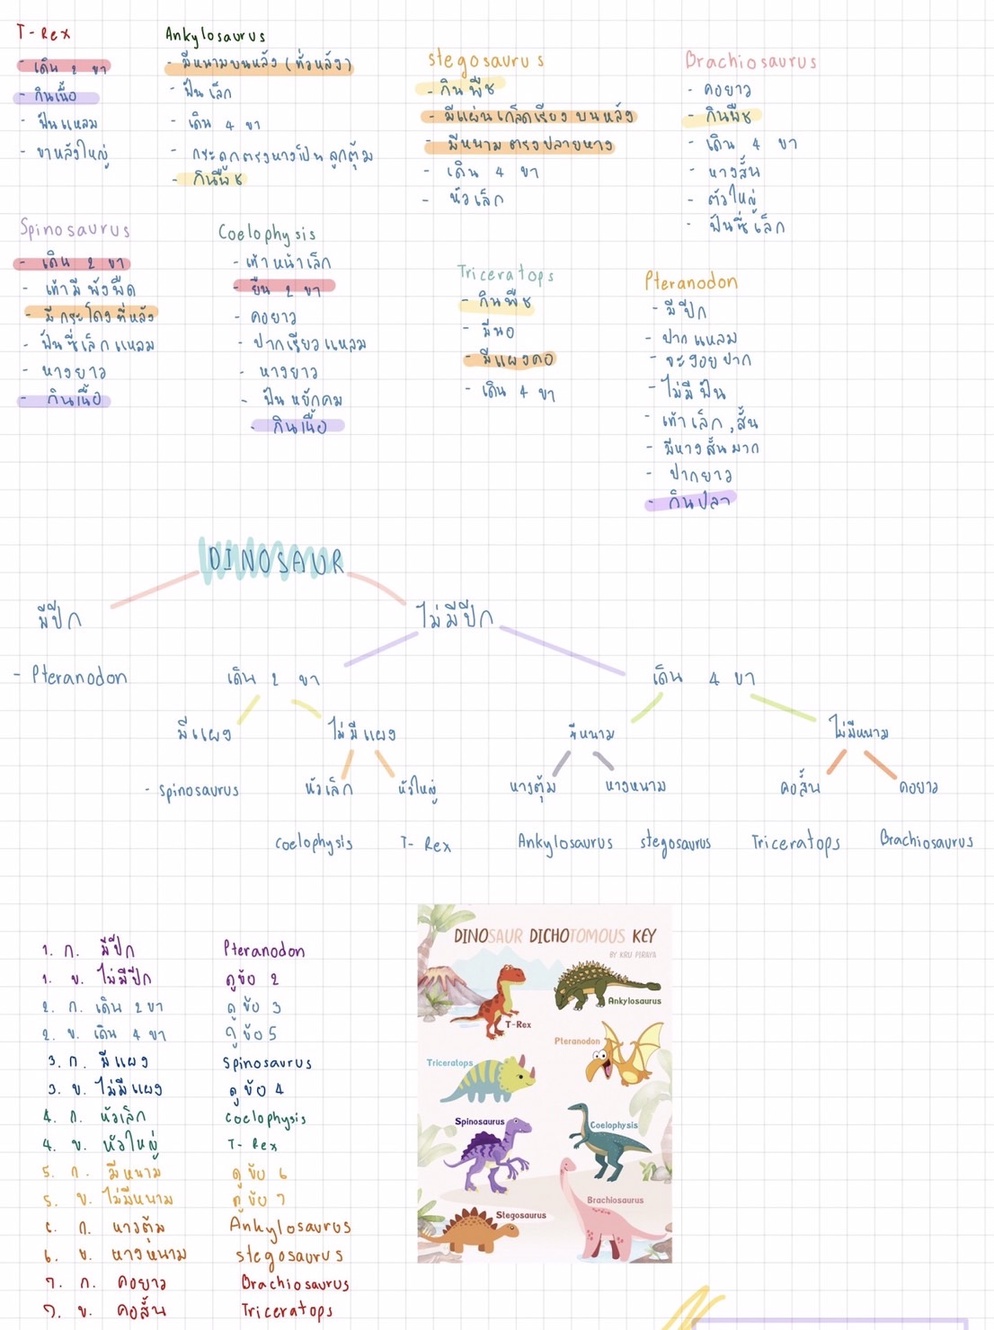 T-Rex
- เดิน 2 ขา
- กินเนื้อ
- ฟันแหลม
- ขาหลังใหญ่
Ankylosaurus
- มีหนามบนหลัง (ทั่วหลัง)
- ฟันเล็ก
- เดิน 4 ขา
- กระดูกตรงหางเป็นลูกตุ้ม
- กินพืช
stegosaurus
- กินพืช
- มีแผ่นเกล็ดเรียงบนหลัง
- มีหนามตรงปลายหาง
- เดิน 4 ขา
- หัวเล็ก
Brachiosaurus
- คอยาว
- กินพืช
- เดิน 4 ขา
- หางสั้น
- ตัวใหญ่
- ฟันซี่เล็ก
Spinosaurus
- เดิน 2 ขา
- เท้ามีพังผืด
- มีกระโดงที่หลัง
- ฟันซี่เล็กแหลม
- หางยาว
- กินเนื้อ
Coelophysis
- เท้าหน้าเล็ก
- ยืน 2 ขา
- คอยาว
- ปากเรียวแหลม
- หางยาว
- ฟันหยักคม
- กินเนื้อ
Triceratops
- กินพืช
- มีนอ
- มีแผงคอ
- เดิน 4 ขา
Pteranodon
- มีปีก
- ปากแหลม
- จะงอยปาก
- ไม่มีฟัน
- เท้าเล็ก, สั้น
- มีหางสั้นมาก
- ปากยาว
- กินปลา
DINOSAUR
มีปีก ไม่มีปีก
- Pteranodon เดิน 2 ขา เดิน 4 ขา
มีแผง ไม่มีแผง มีหนาม ไม่มีหนาม
- Spinosaurus หัวเล็ก หัวใหญ่ หางตุ้ม หางหนาม คอสั้น คอยาว
Coelophysis T-Rex Ankylosaurus stegosaurus Triceratops Brachiosaurus
1. ก. มีปีก Pteranodon
1. ข. ไม่มีปีก ดูข้อ 2
2. ก. เดิน 2 ขา ดูข้อ 3
2. ข. เดิน 4 ขา ดูข้อ 5
3. ก. มีแผง Spinosaurus
3. ข. ไม่มีแผง ดูข้อ 4
4. ก. หัวเล็ก Coelophysis
4. ข. หัวใหญ่ T-Rex
5. ก. มีหนาม ดูข้อ 6
5. ข. ไม่มีหนาม ดูข้อ 7
6. ก. หางตุ้ม Ankylosaurus
6. ข. หางหนาม stegosaurus
7. ก. คอยาว Brachiosaurus
7. ข. คอสั้น Triceratops
DINOSAUR DICHOTOMOUS KEY
BY KRU PIRAYA
Ankylosaurus
T-Rex
Pteranodon
Triceratops
Spinosaurus
Coelophysis
Brachiosaurus
Stegosaurus